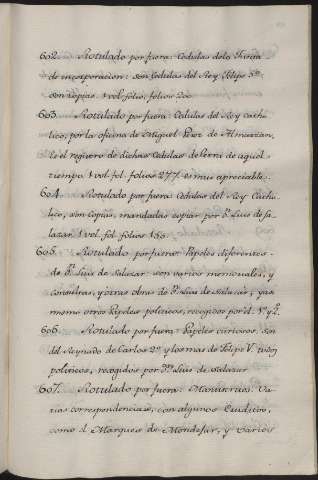 602. Rotulado por fuera: Cedulas dela Junta
de incorporacion: son Cedulas del Rey Felipe 5º
son copias. 1 vol. folio, folios 20
603. Rotulado por fuera: Cedulas del Rey Catho
lico, por la oficina de Miguel Perez de Almazan,
es el registro de dichas Cedulas de Perú de aquel
tiempo 1 vol. fol. folios 277. es muy apreciable.
604. Rotulado por fuera: Cedulas del Rey Catho
lico, son copias, mandadas copiar por Dn. Luis de Sa
lazar. 1 vol. fol. folios 150.
605. Rotulado por fuera: Papeles diferentes
de Dn. Luis de Salazar: son varios memoriales, y
consultas, y otras obras de Dn. Luis de Salazar, y asi
mesmo otros Papeles politicos, recogidos por el. 1º y 2º
606. Rotulado por fuera: Papeles curiosos, son
del Reynado de Carlos 2º y los mas de Felipe V. todos
politicos, recogidos por Dn. Luis de Salazar
607. Rotulado por fuera: Manuscritos. Va
rias correspondencias, con algunos Eruditos,
como el Marques de Mondejar, y varios